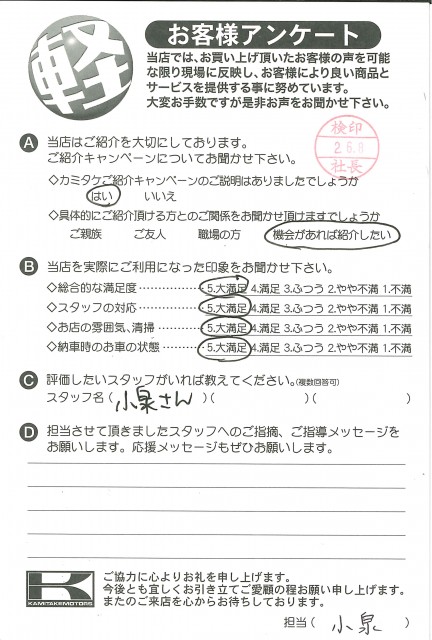 軽
お客様アンケート
当店では、お買い上げ頂いたお客様の声を可能
な限り現場に反映し、お客様により良い商品と
サービスを提供する事に努めています。
大変お手数ですが是非お声をお聞かせ下さい。
検印
2.6.8
社長
A 当店はご紹介を大切にしております。
ご紹介キャンペーンについてお聞かせ下さい。
◇カミタケご紹介キャンペーンのご説明はありましたでしょうか
はい いいえ
◇具体的にご紹介頂ける方とのご関係をお聞かせ頂けますでしょうか
ご親族 ご友人 職場の方 機会があれば紹介したい
B 当店を実際にご利用になった印象をお聞かせ下さい。
◇総合的な満足度 5.大満足 4.満足 3.ふつう 2.やや不満 1.不満
◇スタッフの対応 5.大満足 4.満足 3.ふつう 2.やや不満 1.不満
◇お店の雰囲気、清掃 5.大満足 4.満足 3.ふつう 2.やや不満 1.不満
◇納車時のお車の状態 5.大満足 4.満足 3.ふつう 2.やや不満 1.不満
C 評価したいスタッフがいれば教えてください。(複数回答可)
スタッフ名(小泉さん)( )( )
D 担当させて頂きましたスタッフへのご指摘、ご指導メッセージを
お願いします。応援メッセージもぜひお願いします。
K
KAMITAKEMOTORS
ご協力に心よりお礼を申し上げます。
今後とも宜しくお引き立てご愛顧の程お願い申し上げます。
またのご来店を心からお待ちしております。
担当( 小泉 )